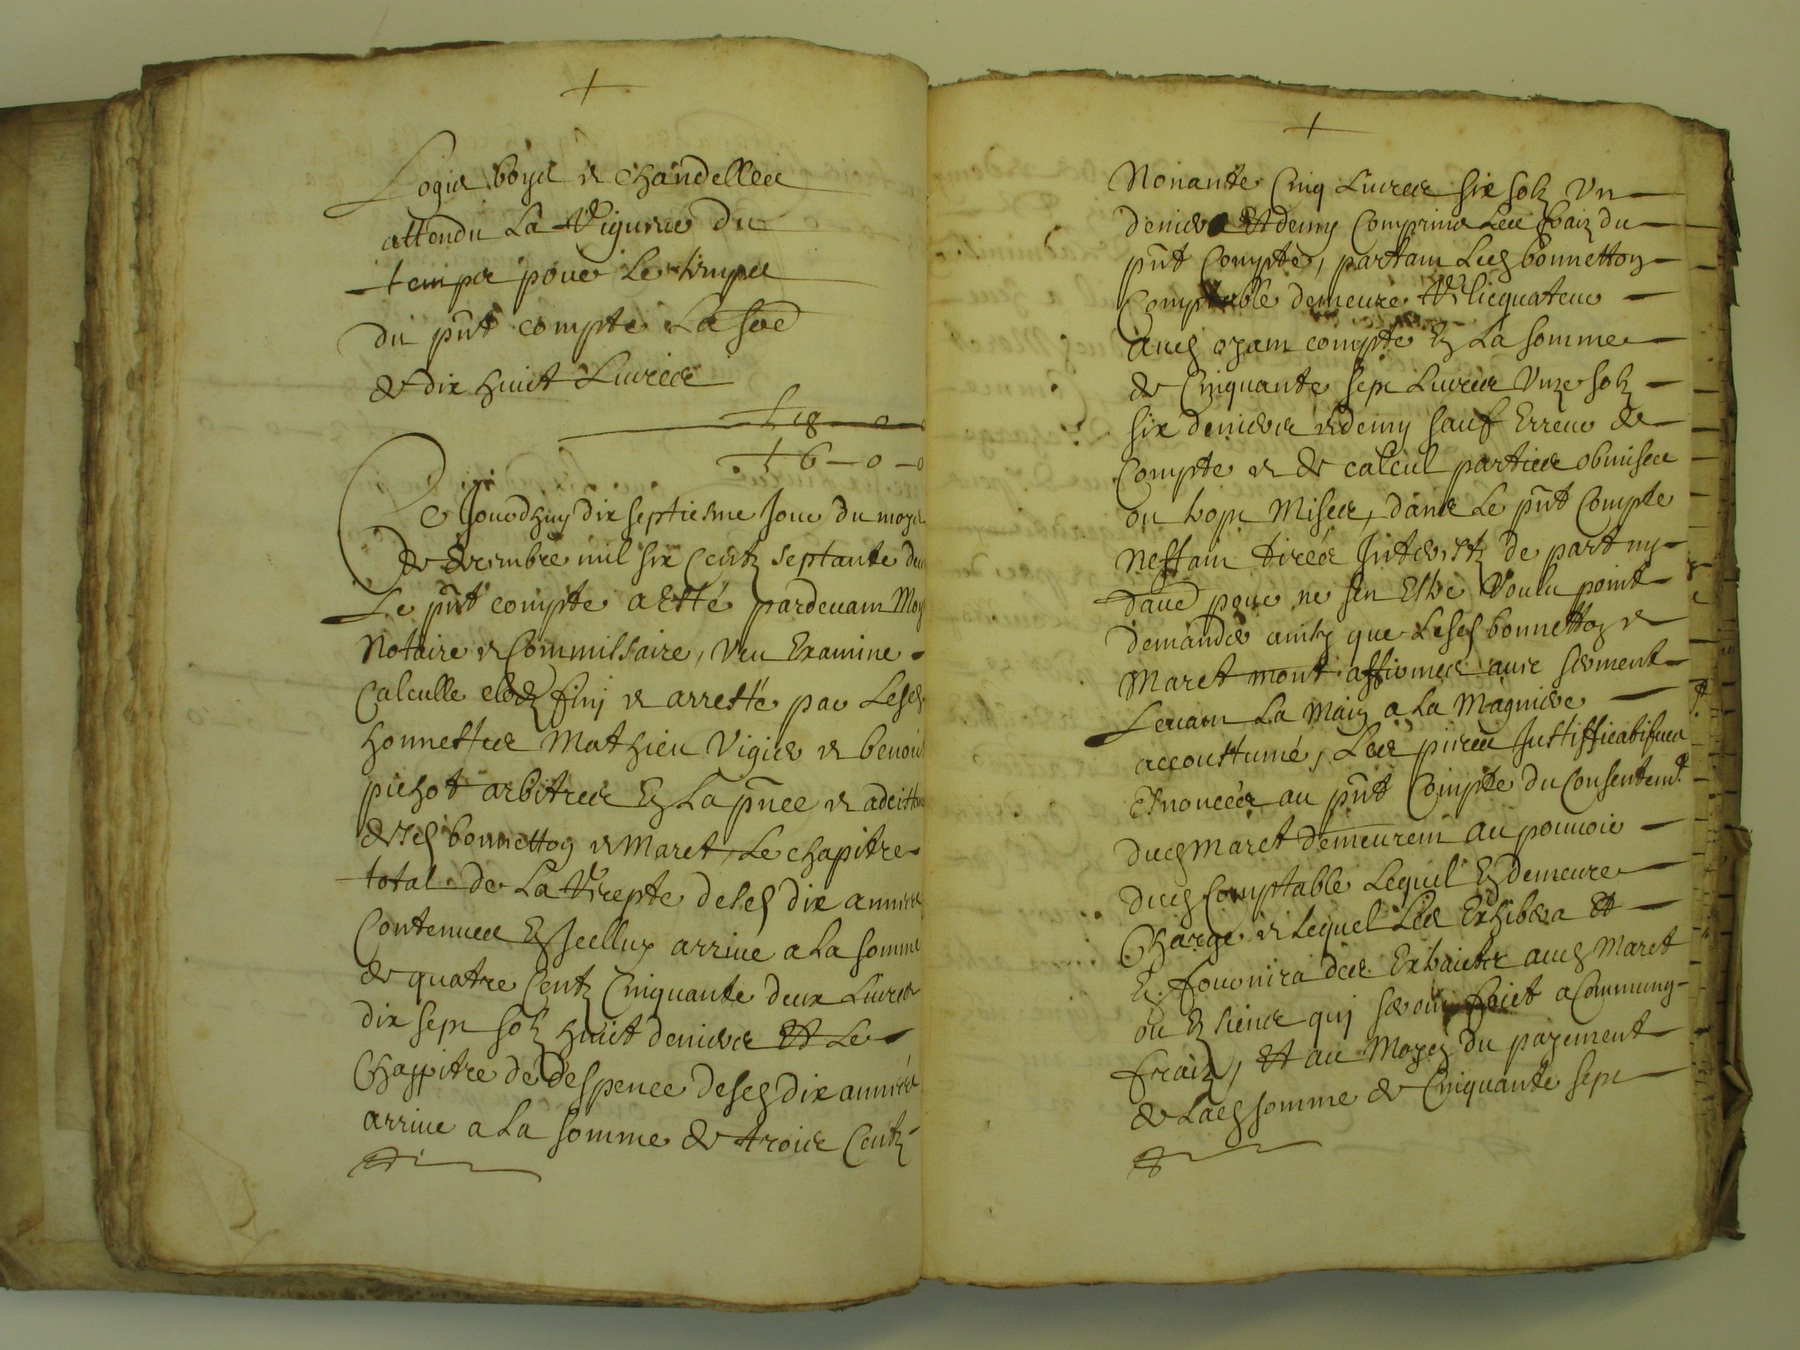 +
Logis boys et chandelles
attendu La Rigueur du
temps pour Le temps
du pnt compte La soe
de dix huict Livres
+ 18 — 0 —
+ 6 — 0 — 0
Ce Jourdhuy dix septiesme Jour du moys
de decembre mil six Centz septante deux
Le pnt compte a esté pardevant Moy
Notaire et Commissaire, veu Examine
Calculle clos finj et arresté par Lesds
honnestes Mathieu Vigier et benoist
pichot arbitres En La pnce et
desds bonnetton et Maret, Le chapitre
total de La Recepte deseds dix annees
Contenues En Icelluy arrive a La somme
de quatre Centz Cinquante deux Livres
dix sept solz huict deniers Et Le
Chappitre de despence deseds dix annees
arrive a La somme de trois Centz
+
Nonante Cinq Livres six solz Un
denier Et demy Comprins Les fraiz du
pnt Compte, partant Led bonnetton
Comptable demeure Reliequateur
aud oyant compte En La somme
de Cinquante sept Livres Unze solz
six deniers et demy sauf Erreur de
Compte et de calcul parties obmises
ou trop Mises, dans Le pnt Compte
Nestant tirés Interestz de part ny
daue pour ne sen Estre Voulu point
demander ainsy que Lesds bonnetton et
Maret mont affirmes avec serment
Levant La Main a La Maniere
accoustumé, Les pieces Justifficatifves
Enoncées au pnt Compte du Consentemt
dud Maret demeurent au pouvoir
dud Comptable Lequel En demeure
Charge et Lequel Les Exhibera Et
En fournira des Extraictz aud Maret
ou Es siens quj seront faict a Commung
fraiz, Et au Moyen du payement
de Lad somme de Cinquante sept